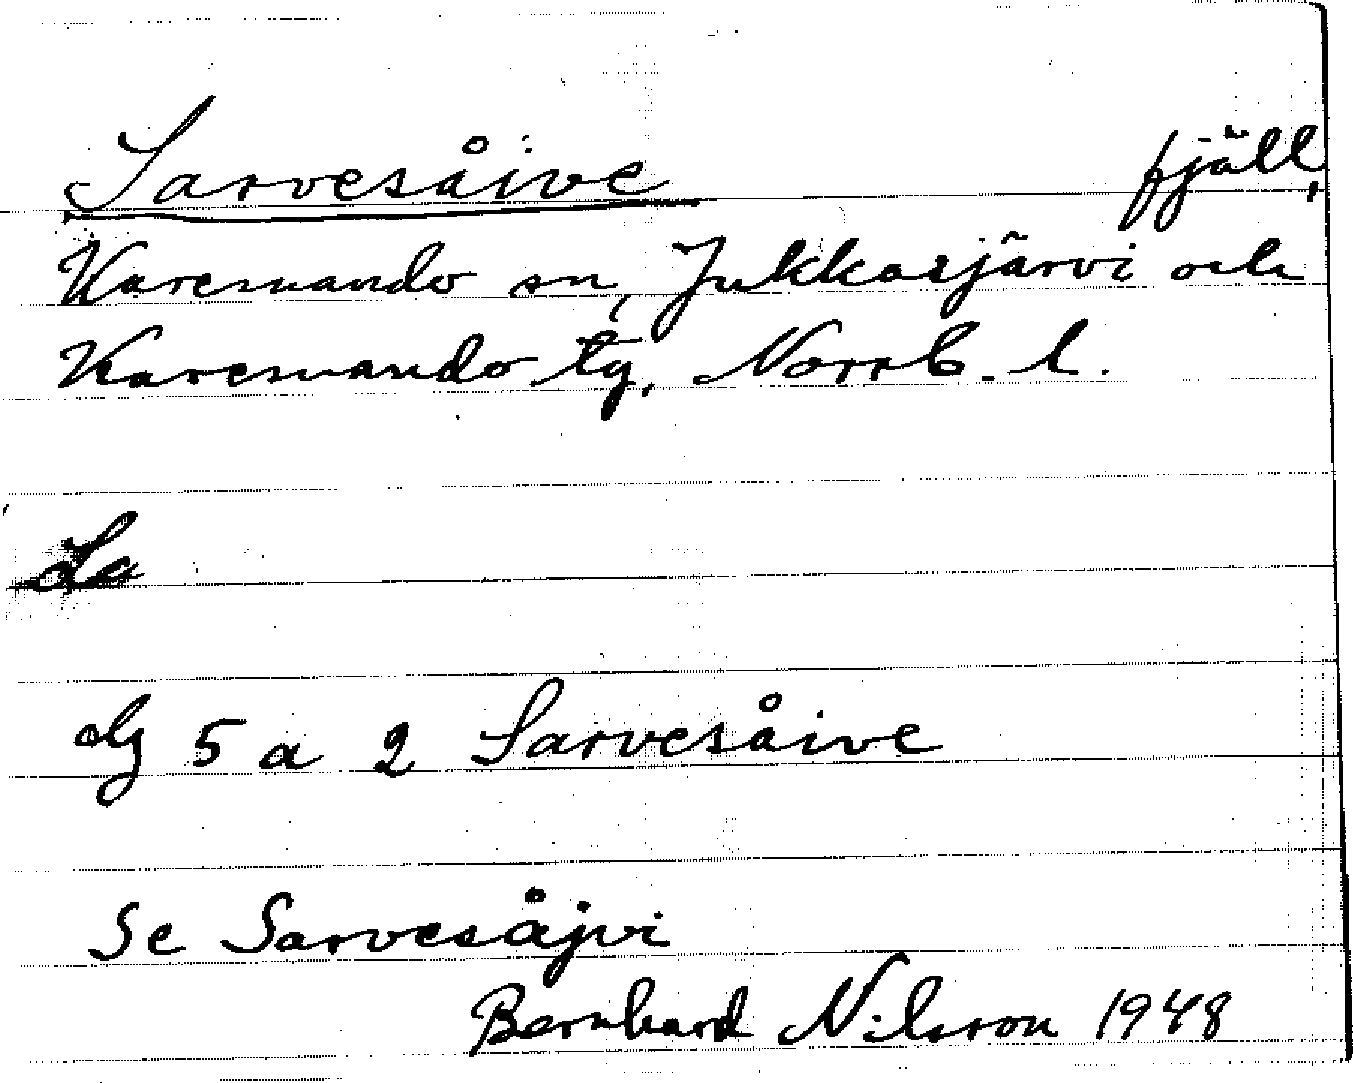 Sarvesåive fjäll,
Karesuando sn, Jukkasjärvi och
Karesuando tg, Norrb. l.
La
dg 5 a 2 Sarvesåive
Se Sarvesåjvi
Bernhard Nilsson 1948